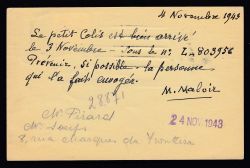 4 Novembre 1943
Le petit Colis est bien arrivé
le 3 Novembre sous le n: L-803956
Prévenir, si possible la personne
qui l'a fait envoyer.
M. Maloir
28671
Mr Pirard
24 NOV 1943
8, rue